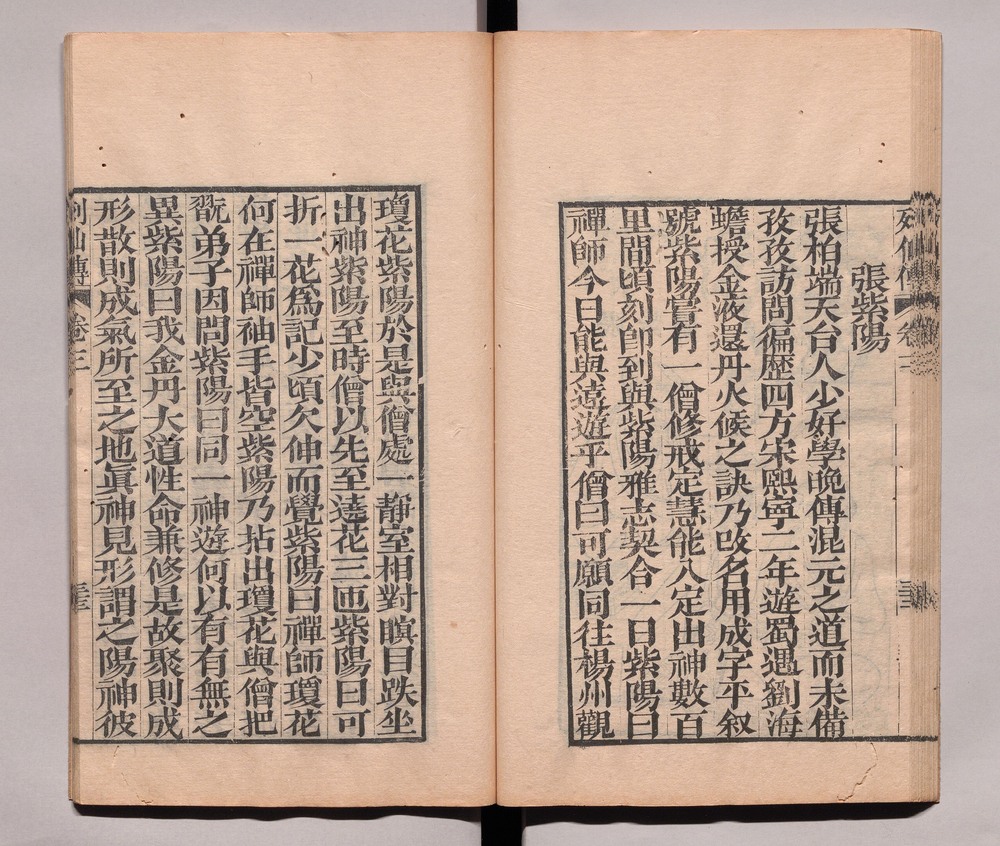 張紫陽
張柏端天台人少好學晚傳混元之道而未備
孜孜訪問徧歷四方宋熙寧二年遊蜀遇劉海
蟾授金液還丹火候之訣乃改名用成字平叙
號紫陽嘗有一僧修戒定慧能入定出神數百
里間頃刻卽到與紫陽雅志契合一日紫陽曰
禪師今日能與遠遊乎僧曰可願同往楊州觀
瓊花紫陽於是與僧處一靜室相對瞑目趺坐
出神紫陽至時僧以先至遶花三匝紫陽曰可
折一花爲記少頃欠伸而覺紫陽曰禪師瓊花
何在禪師袖手皆空紫陽乃拈出瓊花與僧把
翫弟子因問紫陽曰同一神遊何以有有無之
異紫陽曰我金丹大道性命兼修是故聚則成
形散則成氣所至之地眞神見形謂之陽神彼
列仙傳 卷三